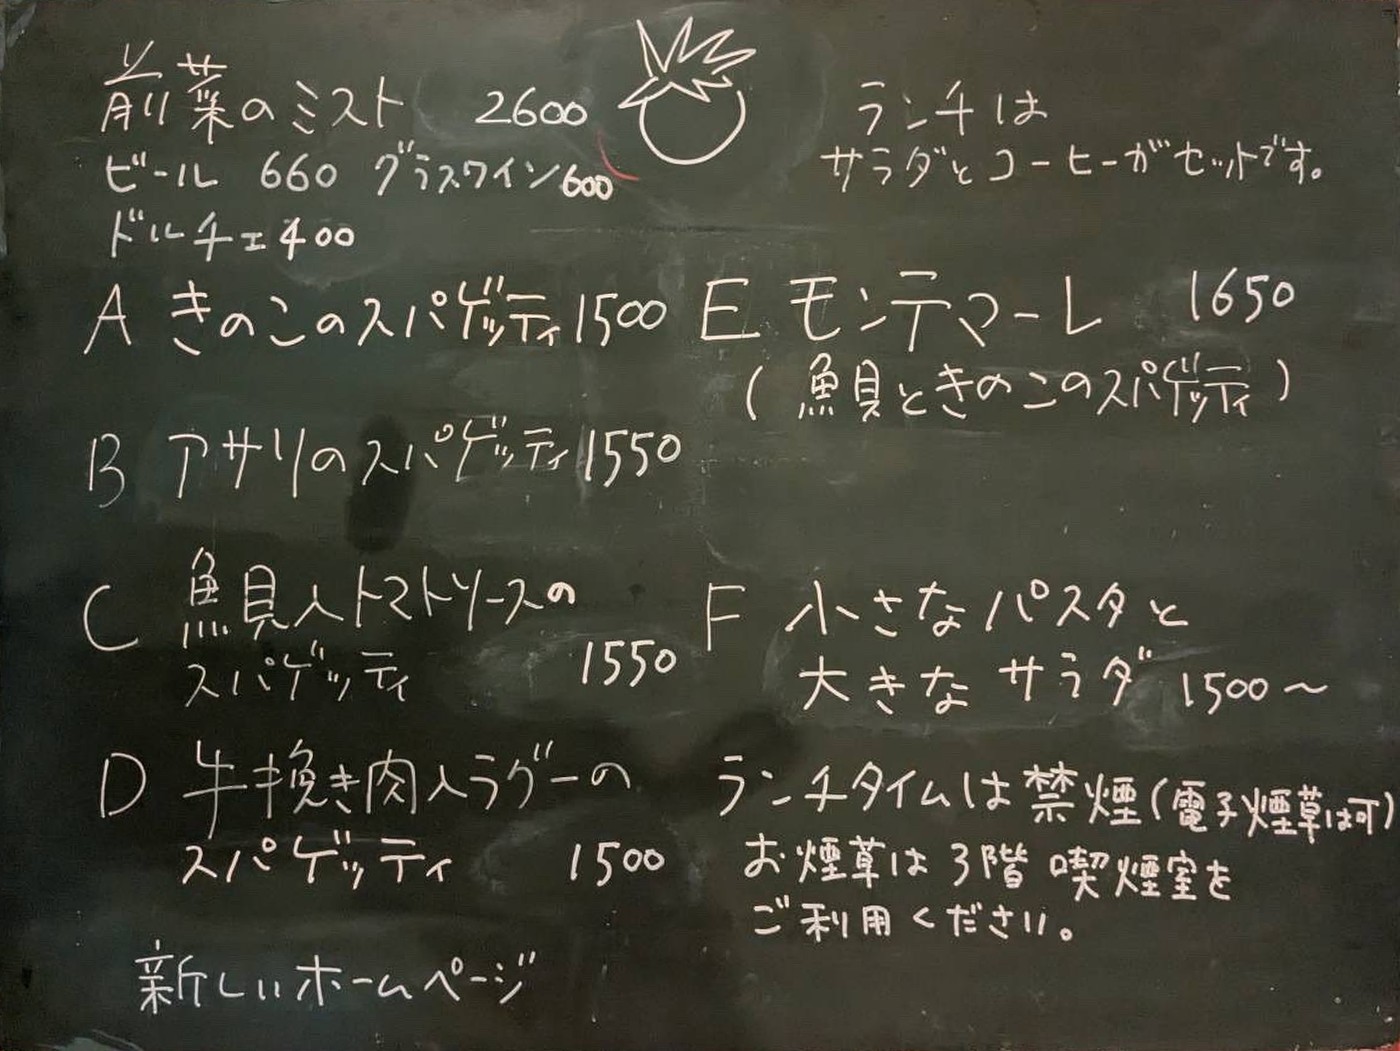 前菜のミスト 2600
ビール 660 グラスワイン600
ドルチェ400
ランチは
サラダとコーヒーがセットです。
A きのこのスパゲッティ1500
B アサリのスパゲッティ1550
C 魚貝入トマトソースの
スパゲッティ 1550
D 牛挽き肉入ラグーの
スパゲッティ 1500
新しいホームページ
E モンテマーレ 1650
(魚貝ときのこのスパゲッティ)
F 小さなパスタと
大きなサラダ 1500～
ランチタイムは禁煙(電子煙草は可)
お煙草は3階喫煙室を
ご利用ください。